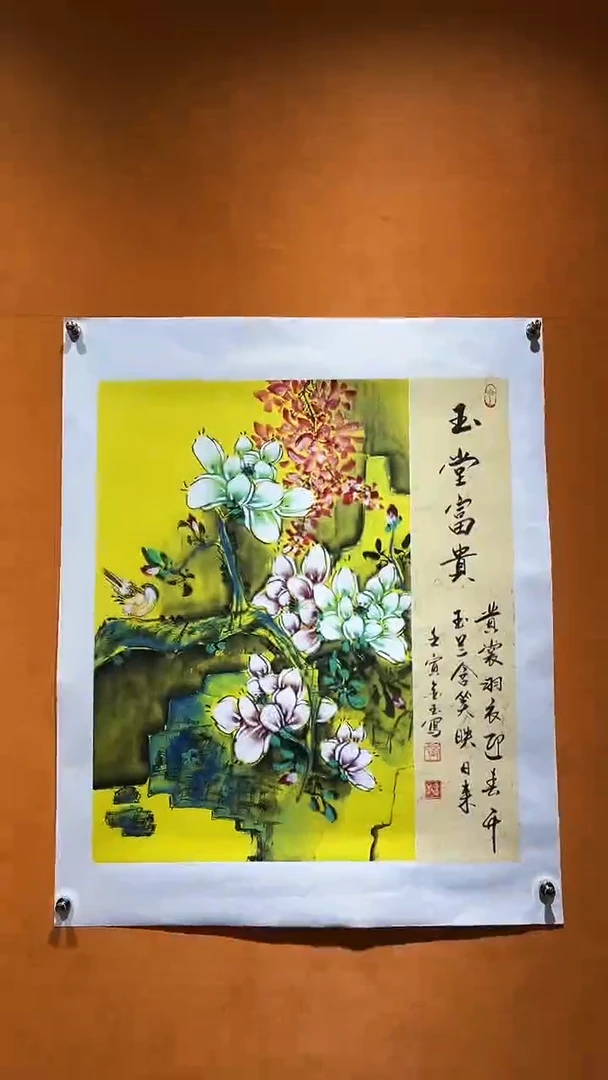 玉堂富貴
黄裳羽衣迎春开
玉兰含笑映日来
壬寅金玉寫